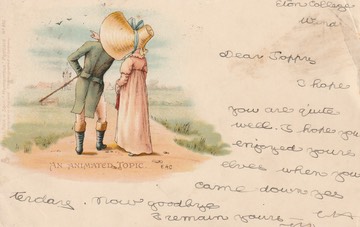 Eton College
Dear Poppy
I hope
you are quite
well. I hope you
enjoyed yours
elves when you
came down yes
terday. Now goodbye
I remain yours
AN ANIMATED TOPIC.